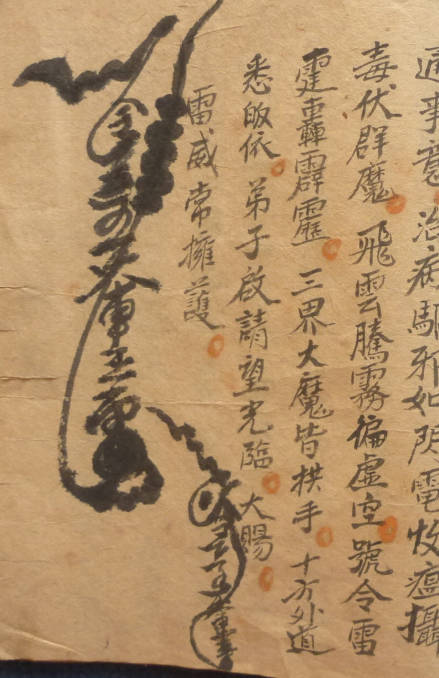 通事意治病驅邪如閃電收瘟攝
毒伏群魔飛雲騰霧徧虛空號令雷
霆轟霹靂三界大魔皆拱手十方外道
悉皈依弟子啟請望光臨大賜
雷威常擁護